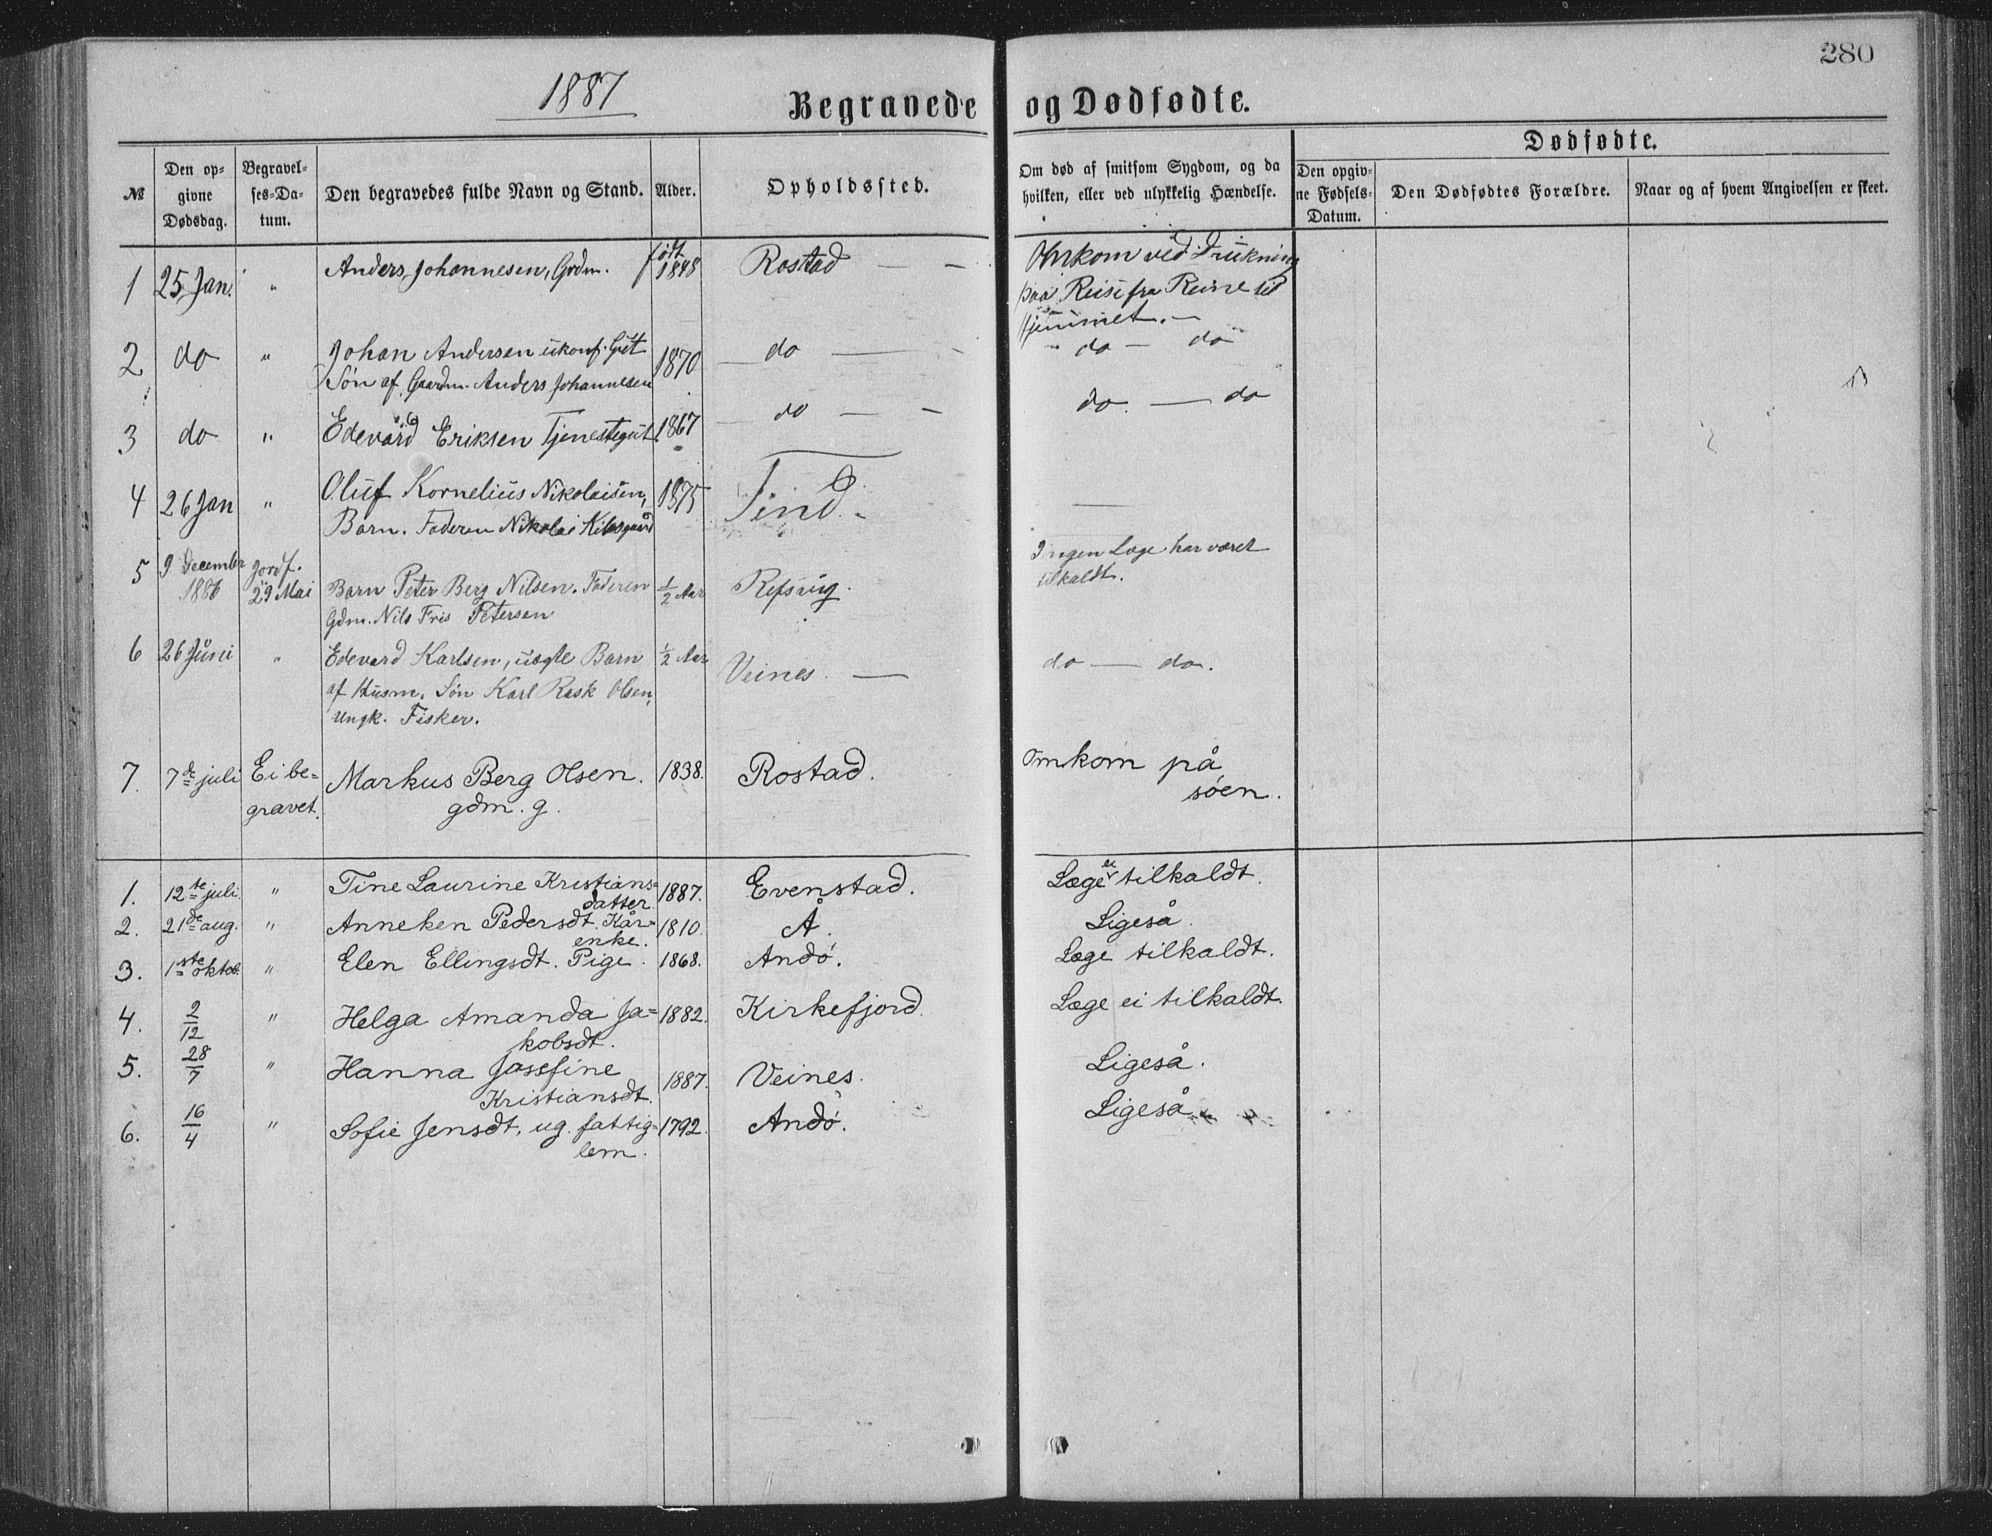 280
1887
Begravede og Dødfødte.
Dødfødte.
№
Den opgivne Dødsdag.
Begravelses-Datum.
Den begravedes fulde Navn og Stand.
Alder.
Opholdssted.
Om død af smitsom Sygdom, og da hvilken, eller ved ulykkelig Hændelse.
Den opgivne Fødsels-Datum.
Den Dødfødtes Forældre.
Naar og af hvem Angivelsen er skeet.
1 25 Jan. " Anders Johannesen, Grdm. født 1848 Rostad — — Omkom ved Drukning
paa Reise fra Reine til
Hjemmet. —
2 do " Johan Andersen ukonf. Gut 1870 — do — — do — do
Søn af Gaardm. Anders Johannesen
3 do " Edevard Eriksen Tjenestegut 1867 — do — — do. — do
4 26 Jan " Oluf Kornelius Nikolaisen, 1875 Tind. — —
Barn. Faderen Nikolai
5 9 December 1886 Jordf. 29 Mai Barn Peter Berg Nilsen. Faderen 1/2 Aar Refsvig. Ingen Læge har været
Gdm. Nils Fris Petersen tilkaldt.
6 26 Juni " Edevard Karlsen, uægte Barn 1/2 Aar Veines. — do — do.
af Husm. Søn Karl Rask Olsen,
Ungk. Fisker.
7. 7de juli Ei be= Markus Berg Olsen. 1838. Rostad. Omkom på
gravet. gdm. g. søen.
1. 12te juli. " Tine Laurine Kristians= 1887. Evenstad. Læge ei tilkaldt.
datter
2. 21de aug. " Anneken Pedersdt. Kår= 1810. Å. Ligeså
enke.
3. 1ste oktob. " Elen Ellingsdt. Pige. 1868. Andø. Læge tilkaldt.
4. 2/12 " Helga Amanda Ja= 1882. Kirkefjord. Læge ei tilkaldt.
kobsdt.
5. 28/7 " Hanna Josefine 1887. Veines. Ligeså.
Kristiansdt.
6. 16/4 " Sofie Jensdt, ug. fattig= 1792. Andø. Ligeså
lem.